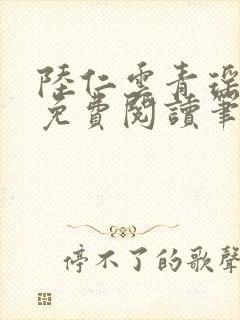 陸仁雲青瑤
免費閱讀筆
停不了的歌聲